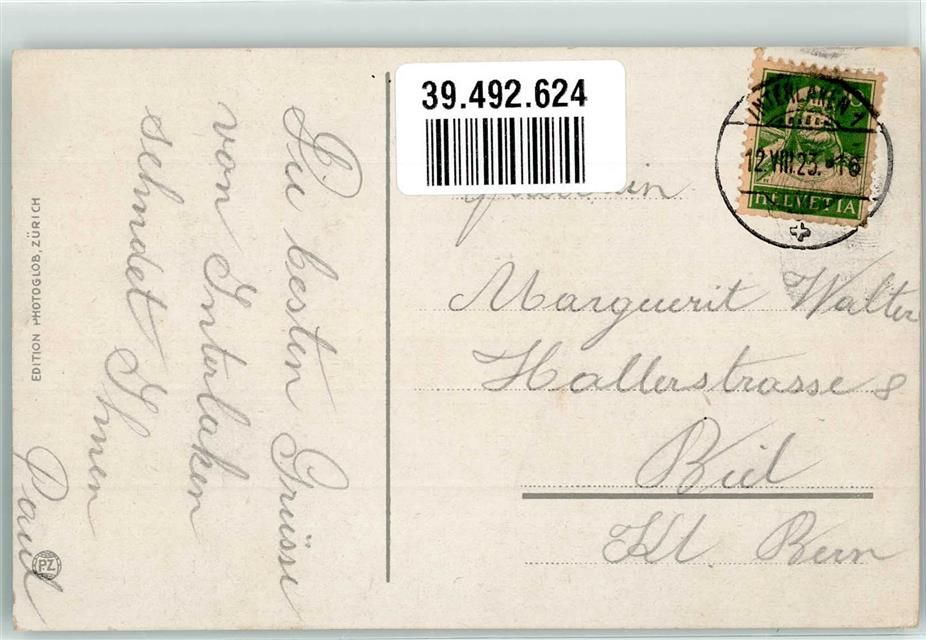 EDITION PHOTOGLOB, ZÜRICH
PZ
Die besten Grüsse
von Interlaken
sehndet Ihnen
Paul
39.492.624
INTERLAKEN 1
12.VIII.23.-16
10
HELVETIA
Marguerit Walter
Hallerstrasse 8
Biel
Kt. Bern